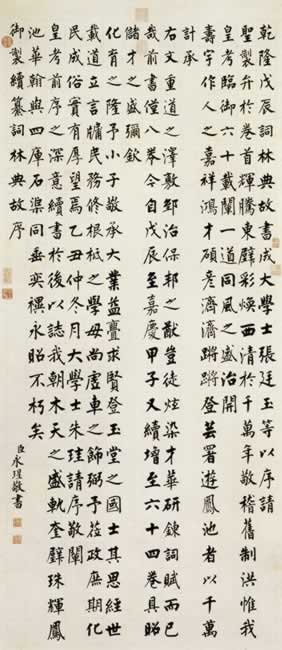 乾隆戊辰詞林典故書成大學士張廷玉等以序請
聖製弁於卷首輝騰東壁彩煥西清於千萬年敬稽舊制洪惟我
皇考臨御六十載闡一道同風之盛治開
壽宇作人之嘉祥鴻才碩彥濟濟蹌蹌登芸署遊鳳池者以千萬
計承
右文重道之澤敷郅治保邦之猷豈徒炫染才華研鍊詞賦而已
哉前書僅八卷今自戊辰至嘉慶甲子又續增至六十四卷具昭
儲才之盛彌欽
化育之隆予小子敬承大業益亹求賢登玉堂之國士其思經世
載道立言牖民務修根柢之學毋尚虛車之飾弼予蒞政庶期化
民成俗實有厚望焉乙丑仲冬月大學士朱珪請序敬闡
皇考前序之深意續書於後以誌我朝木天之盛軌奎璧珠輝鳳
池華翰與四庫石渠同垂奕禩永昭不朽矣
御製續纂詞林典故序
臣永瑆敬書